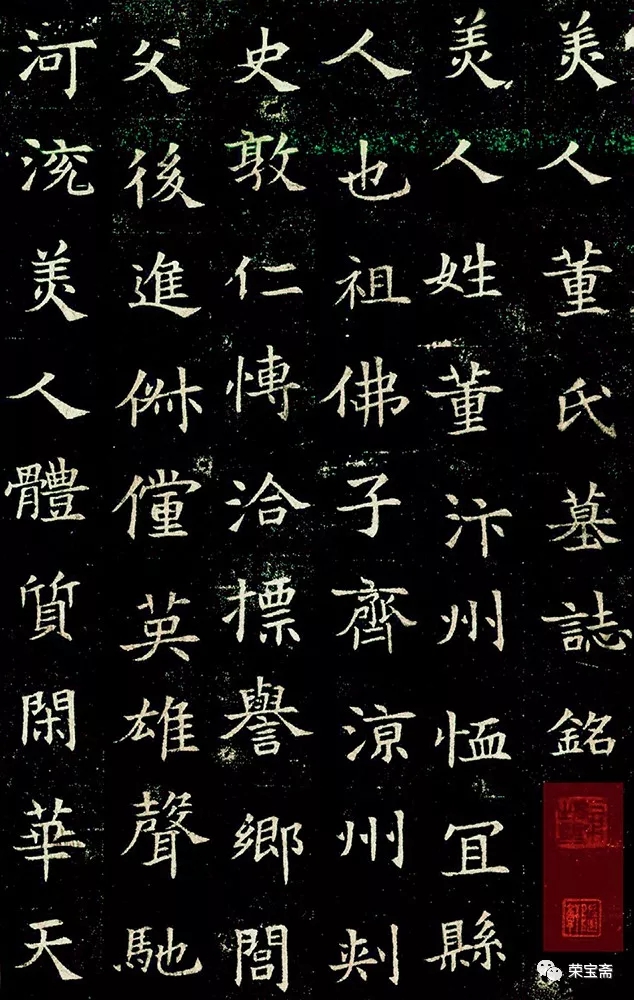 美人董氏墓誌銘
美人姓董汴州恤冝縣
人也祖佛子齊涼州刾
史敦仁愽洽摽譽鄉閭
父後進俶儻英雄聲馳
河沇美人體質閑華天
荣宝斋